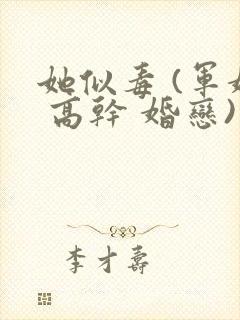 她似毒(軍婚
高幹 婚戀)
李才壽